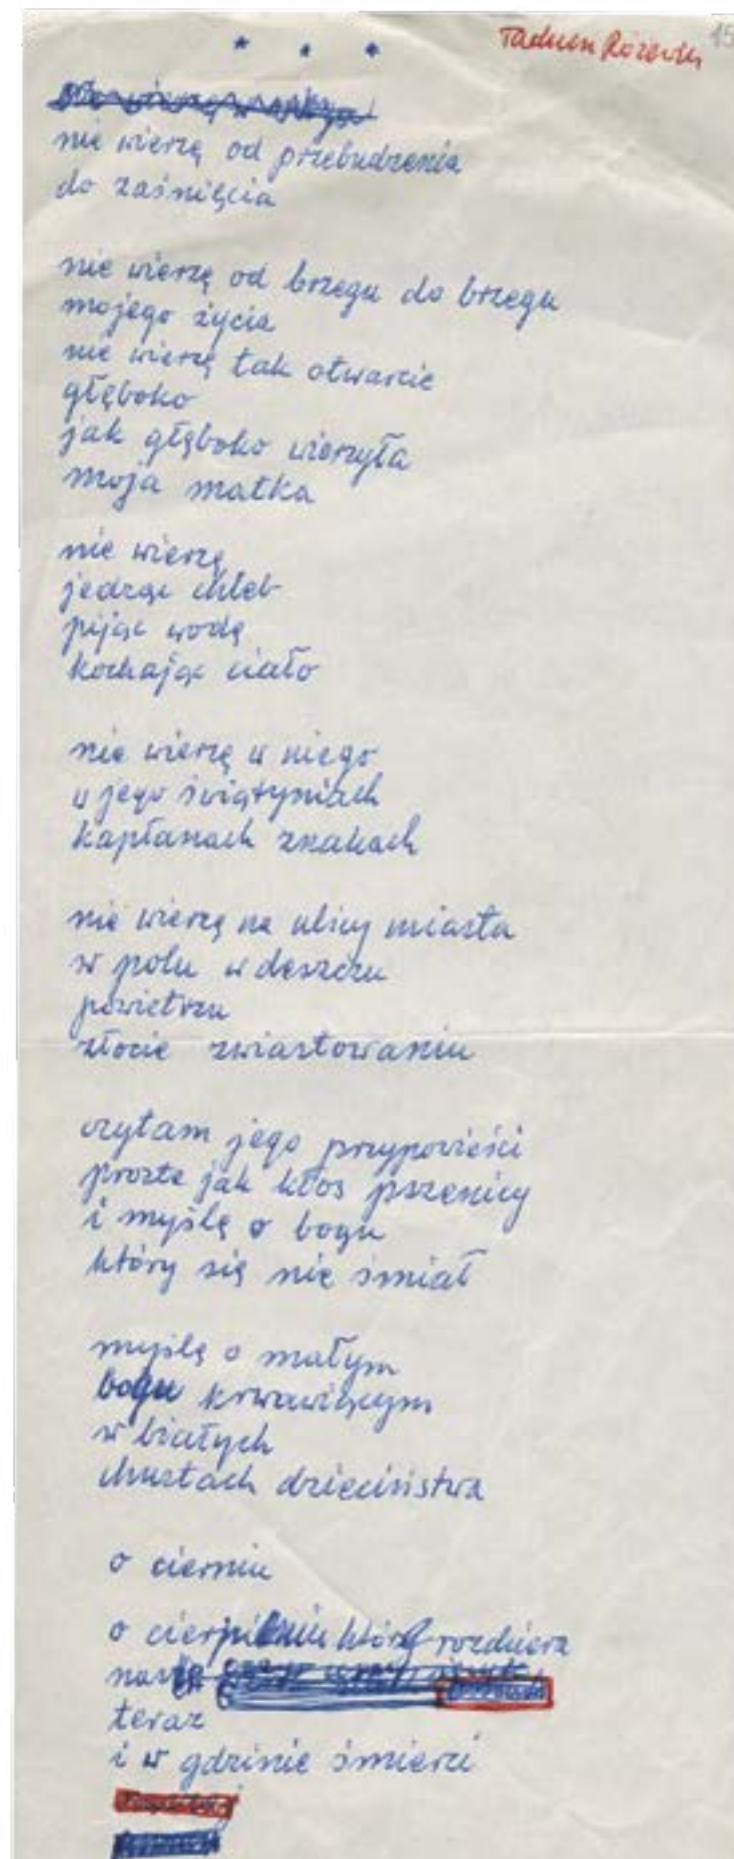 * * *
Tadeusz Różewicz 15
nie wierzę od przebudzenia
do zaśnięcia
nie wierzę od brzegu do brzegu
mojego życia
nie wierzę tak otwarcie
głęboko
jak głęboko wierzyła
moja matka
nie wierzę
jedząc chleb
pijąc wodę
kochając ciało
nie wierzę w niego
w jego świątyniach
kapłanach znakach
nie wierzę na ulicy miasta
w polu w deszczu
powietrzu
złocie zwiastowaniu
czytam jego przypowieści
proste jak kłos pszenicy
i myślę o bogu
który się nie śmiał
myślę o małym
bogu krwawiącym
w białych
chustach dzieciństwa
o cierniu
o cierpieniu które rozdziera
teraz
i w godzinie śmierci